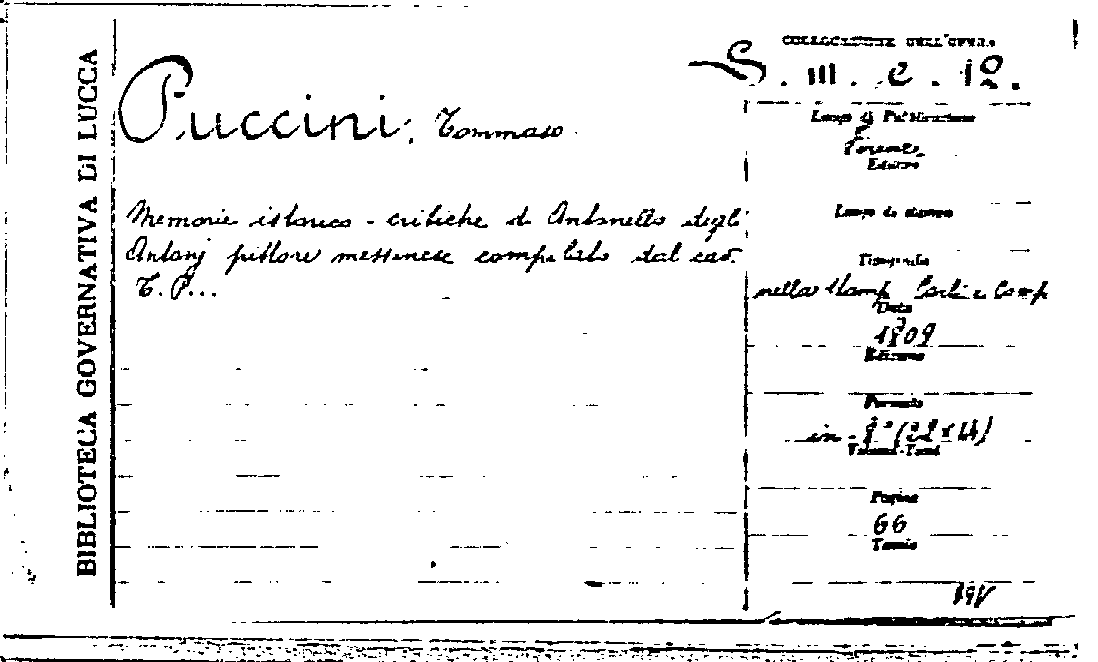 BIBLIOTECA GOVERNATIVA DI LUCCA
Puccini, Tommaso.
Memorie istorico-critiche di Antonello degli
Antonj pittore messinese compilate dal cav.
T. P...
COLLOCAZIONE DELL'OPERA
S. III. C. 12.
Luogo di Pubblicazione
Firenze
Editore
Luogo di stampa
Tipografia
nella Stamp. Carli e Comp
Data
1809
Edizione
Formato
in-8° (22x14)
Volumi-Tomi
Pagine
66
Tavole